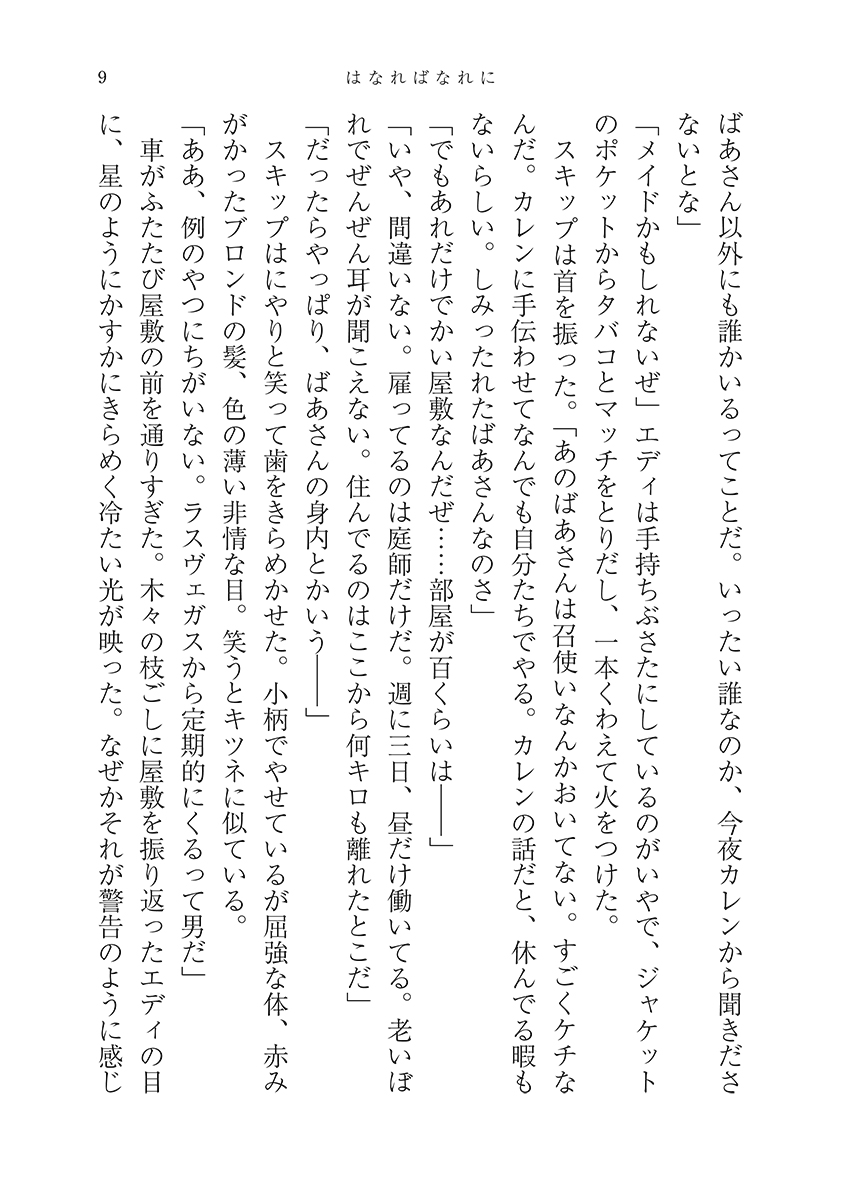 9
はなればなれに
ばあさん以外にも誰かいるってことだ。いったい誰なのか、今夜カレンから聞きださ
ないとな」
「メイドかもしれないぜ」エディは手持ちぶさたにしているのがいやで、ジャケット
のポケットからタバコとマッチをとりだし、一本くわえて火をつけた。
　スキップは首を振った。「あのばあさんは召使いなんかおいてない。すごくケチな
んだ。カレンに手伝わせてなんでも自分たちでやる。カレンの話だと、休んでる暇も
ないらしい。しみったれたばあさんなのさ」
「でもあれだけでかい屋敷なんだぜ……部屋が百くらいは――」
「いや、間違いない。雇ってるのは庭師だけだ。週に三日、昼だけ働いてる。老いぼ
れでぜんぜん耳が聞こえない。住んでるのはここから何キロも離れたとこだ」
「だったらやっぱり、ばあさんの身内とかいう――」
　スキップはにやりと笑って歯をきらめかせた。小柄でやせているが屈強な体、赤み
がかったブロンドの髪、色の薄い非情な目。笑うとキツネに似ている。
「ああ、例のやつにちがいない。ラスヴェガスから定期的にくるって男だ」
　車がふたたび屋敷の前を通りすぎた。木々の枝ごしに屋敷を振り返ったエディの目
に、星のようにかすかにきらめく冷たい光が映った。なぜかそれが警告のように感じ